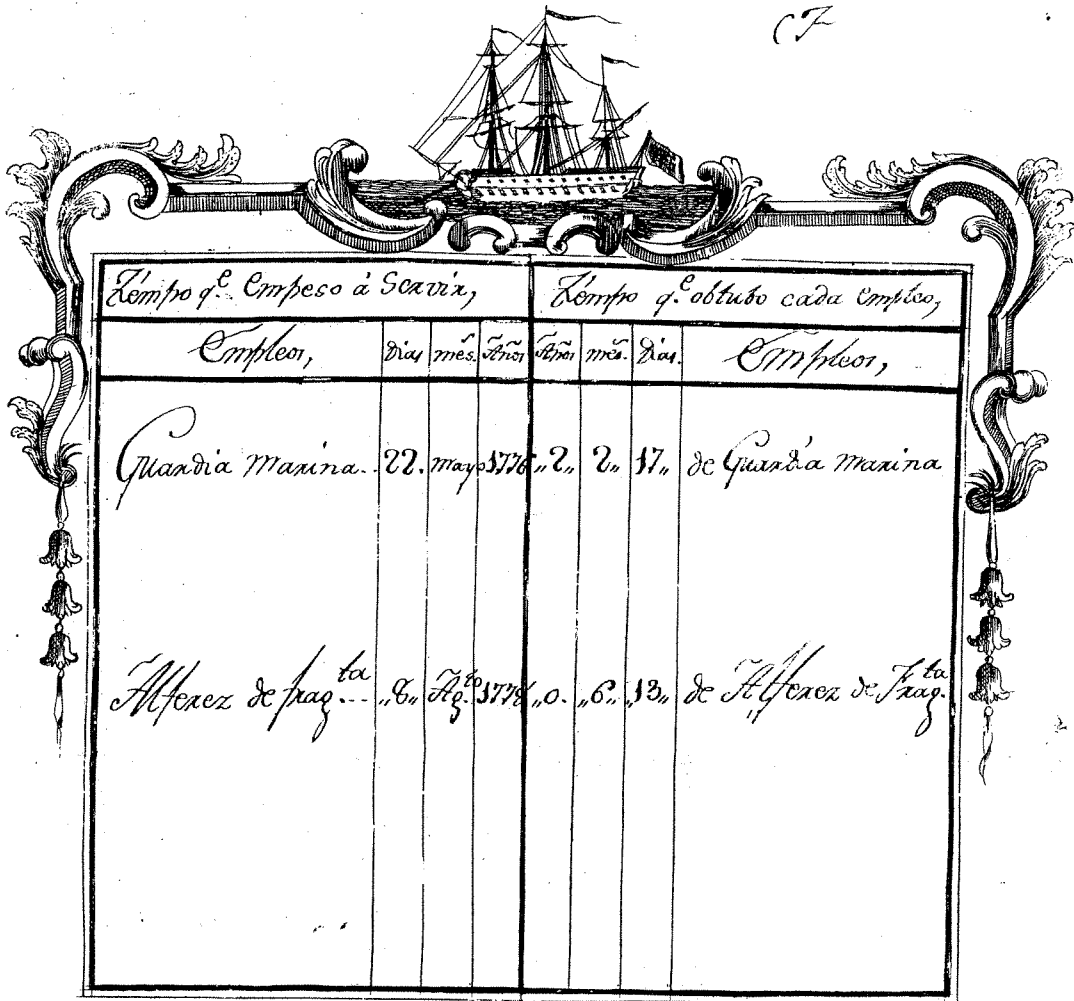 CF
Tiempo q.e Empeso à Servir, Tiempo q.e obtubo cada empleo,
Empleos, Dias mẽs. Años Años mẽs. Dias. Empleos,
Guardia Marina.. 22. mayo 1776 „2„ 2„ 17„ de Guardia Marina
Alferez de frag.ta ... „8„ Ag.to 1778 „0. „6„ 13„ de Alferez de Frag.ta